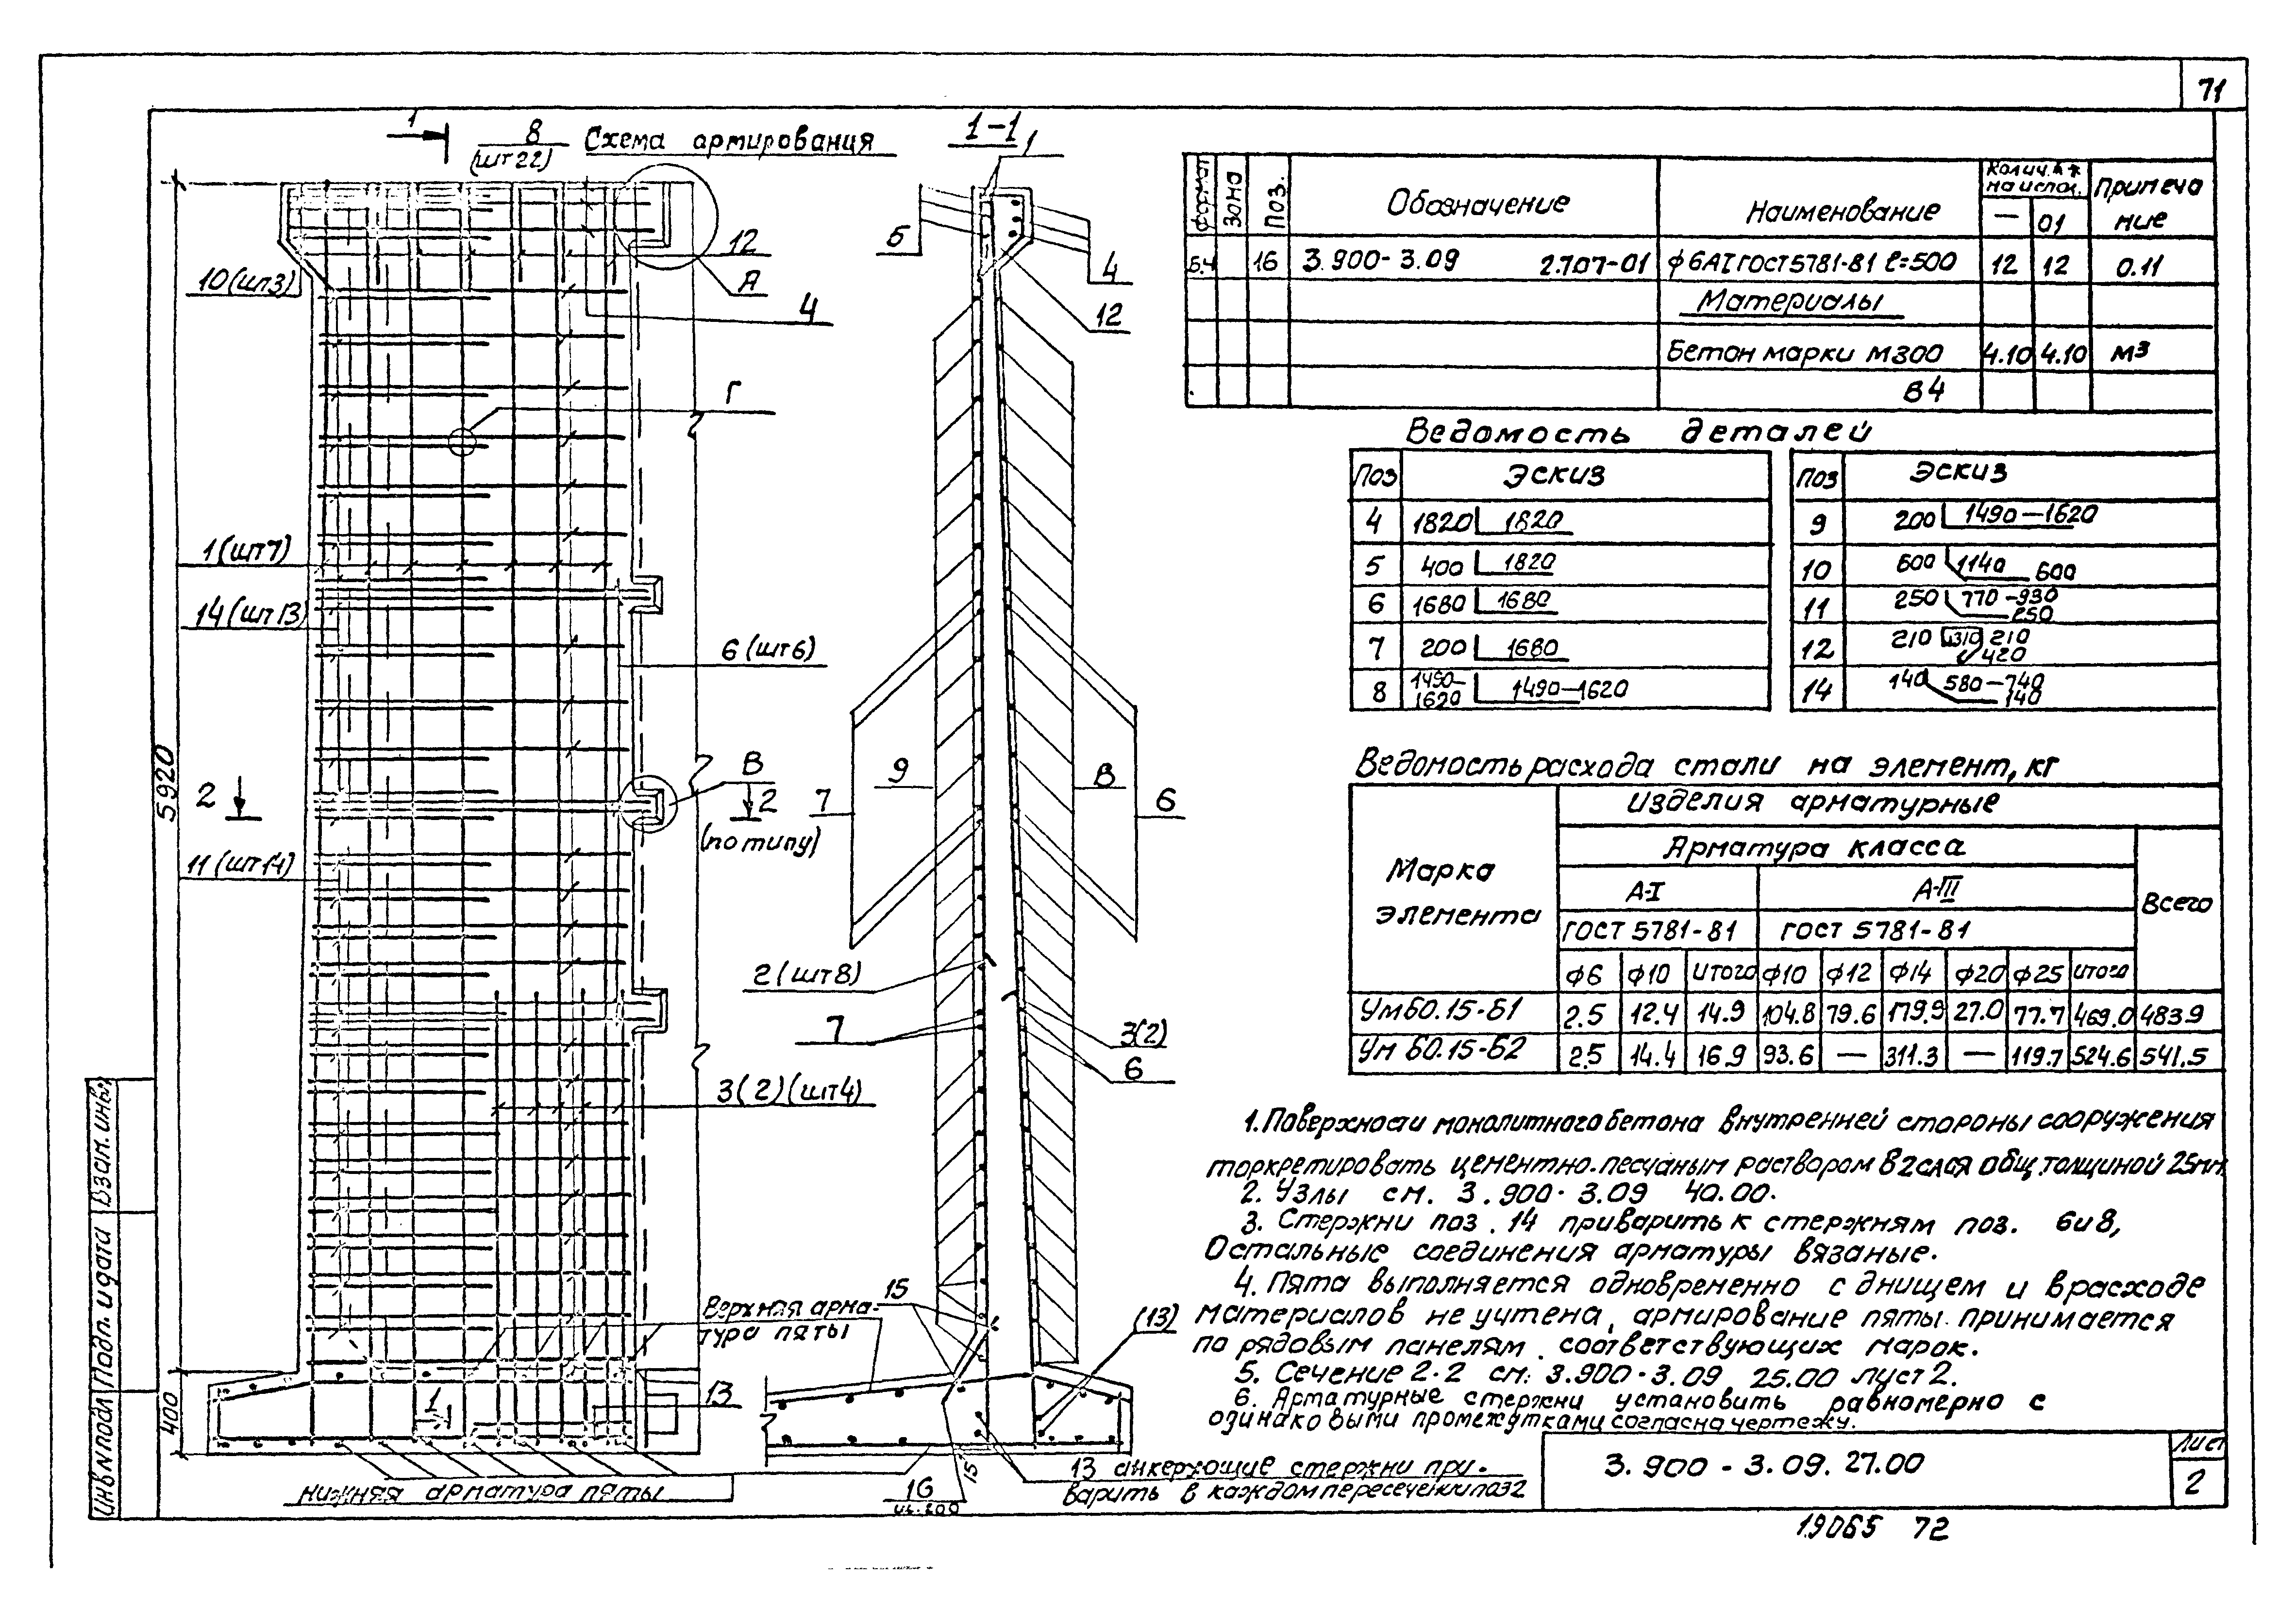 71
1
8
(шт22)
Схема армирования
1-1
1
12
10(шт3)
А
4
Г
1(шт7)
14(шт13)
6(шт6)
5920
2
В
2
(по типу)
11(шт14)
3(2)(шт4)
Верхняя арма-
тура пяты
400
1
13
нижняя арматура пяты
5
4
12
9
7
8
6
2(шт8)
7
3(2)
6
15
(13)
15
16
ш.200
13 анкерующие стержни при-
варить в каждом пересечении поз2
формат
Зона
Поз.
Обозначение
Наименование
Колич.
на испол.
— 01
Примеча
ние
Б.ч 16 3.900-3.09 2.707-01 ф6АI ГОСТ5781-81 ℓ=500 12 12 0.11
Материалы
Бетон марки М300 4.10 4.10 м3
В4
Ведомость деталей
Поз Эскиз
4 1820 1820
5 400 1820
6 1680 1680
7 200 1680
8 1490-1620 1490-1620
Поз Эскиз
9 200 1490-1620
10 600 1140 600
11 250 770-930 250
12 210 310 210 420
14 140 580-740 140
Ведомость расхода стали на элемент, кг
Марка элемента
Изделия арматурные
Арматура класса
Всего
А-I А-III
ГОСТ 5781-81 ГОСТ 5781-81
ф6 ф10 итого ф10 ф12 ф14 ф20 ф25 итого
Ум60.15-Б1 2.5 12.4 14.9 104.8 79.6 179.9 27.0 77.7 469.0 483.9
Ум 60.15-Б2 2.5 14.4 16.9 93.6 — 311.3 — 119.7 524.6 541.5
1. Поверхности монолитного бетона внутренней стороны сооружения
торкретировать цементно-песчаным раствором в 2 слоя общ. толщиной 25мм.
2. Узлы см. 3.900-3.09 40.00.
3. Стержни поз. 14 приварить к стержням поз. 6 и 8,
Остальные соединения арматуры вязаные.
4. Пята выполняется одновременно с днищем и в расходе
материалов не учтена, армирование пяты принимается
по рядовым панелям соответствующих марок.
5. Сечение 2-2 см. 3.900-3.09 25.00 лист 2.
6. Арматурные стержни установить равномерно с
одинаковыми промежутками согласно чертежу.
3.900-3.09.27.00
Лист
2
19065 72
Инв.№подл
Подп. и дата
Взам.инв.